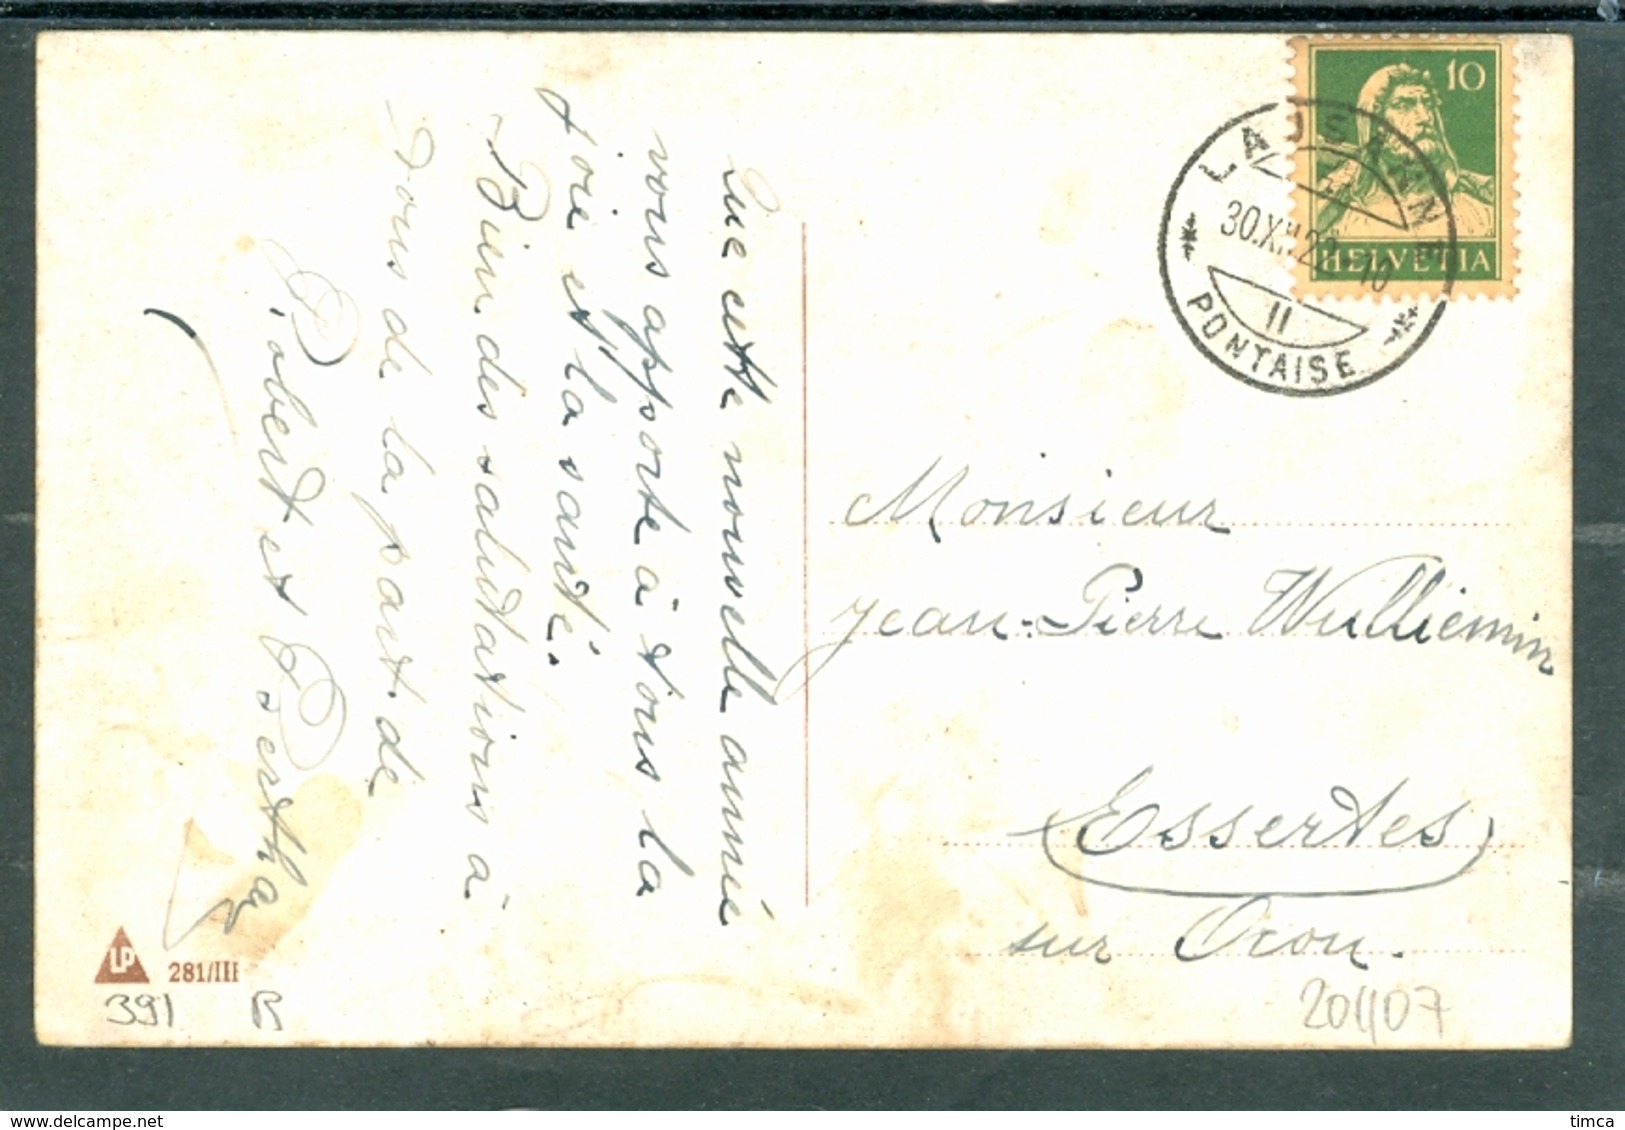 Que cette nouvelle année
vous apporte à tous la
joie et la santé.
Bien des salutations à
tous de la part de
Robert et Bertha
10
HELVETIA
LAUSANNE
30.XII.2
10
II
PONTAISE
Monsieur
Jean-Pierre Wulliemin
Essertes
sur Oron.
LP
281/III
391
R
delcampe.net
timca